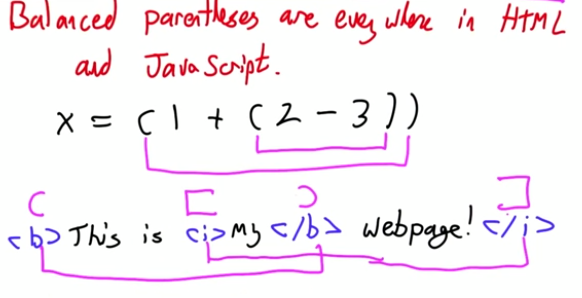 Balanced parentheses are everywhere in HTML
and JavaScript.
x = (1 + (2 - 3))
( [ ) ]
<b> This is <i> My </b> webpage! </i>